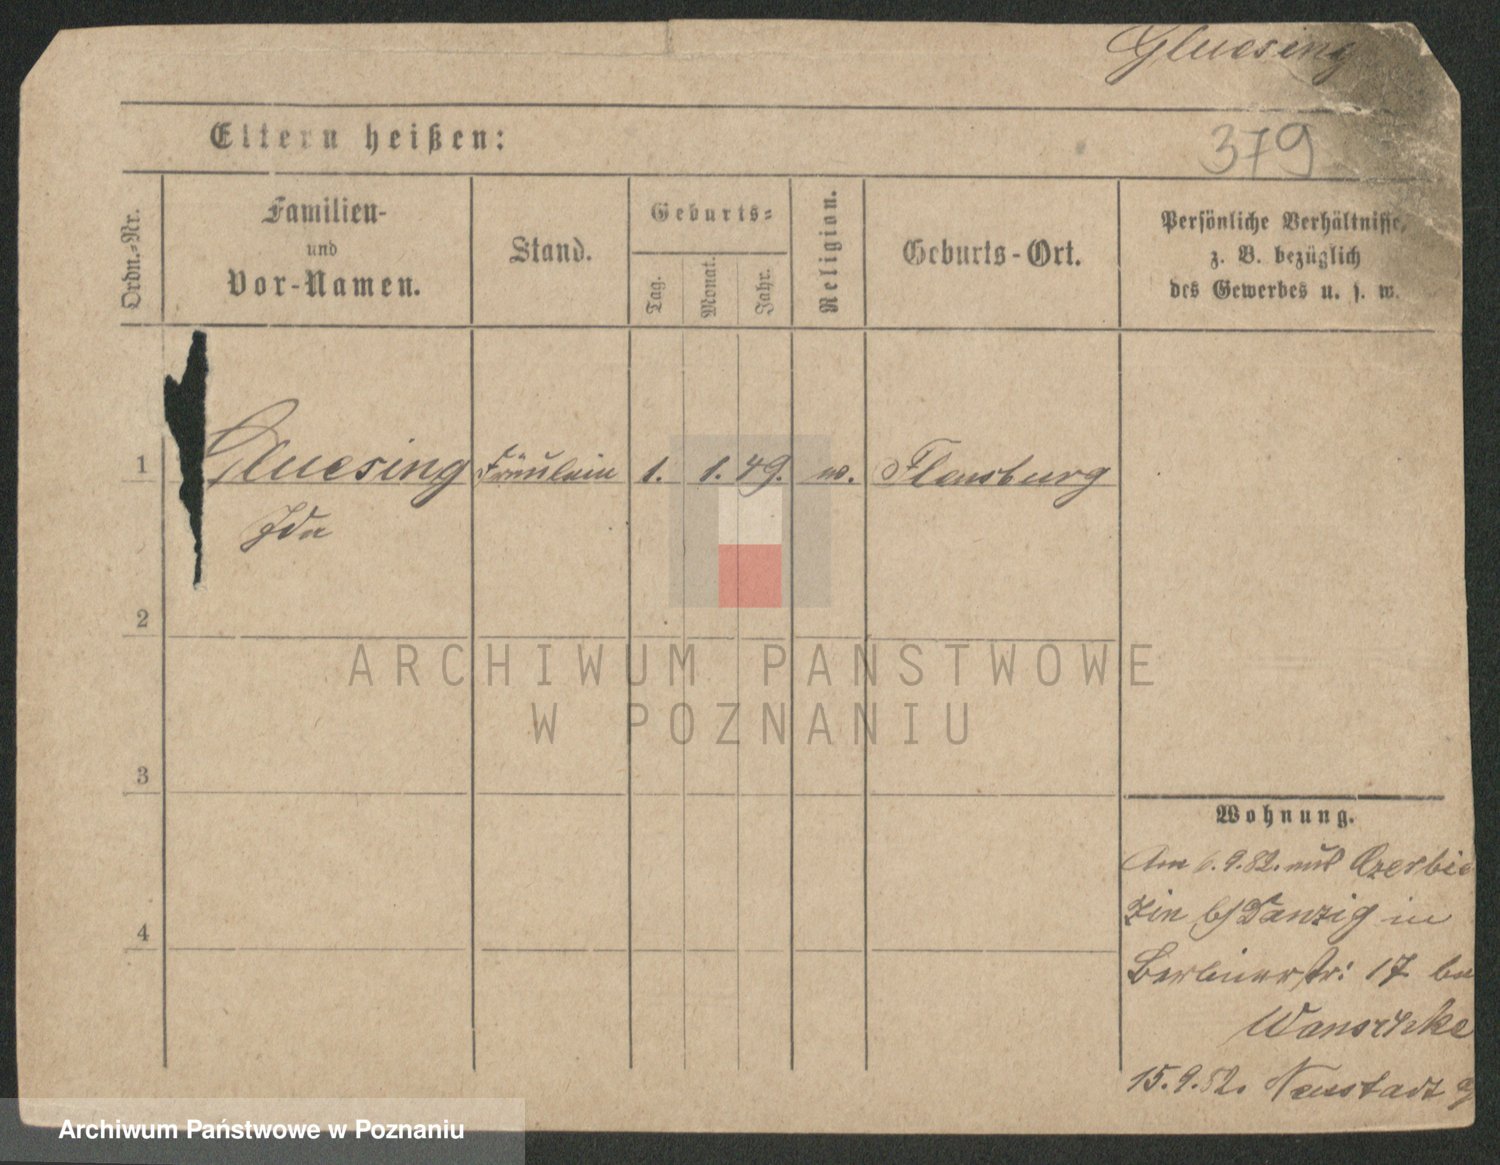 Gluesing
379
Eltern heißen:
Ordn.-Nr.
Familien-
und
Vor-Namen.
Stand.
Geburts-
Tag.
Monat.
Jahr.
Religion.
Geburts-Ort.
Persönliche Verhältnisse,
z. B. bezüglich
des Gewerbes u. s. w.
1 Gluesing Fräulein 1. 1. 49. Flensburg
Ida
2
ARCHIWUM PAŃSTWOWE
W POZNANIU
3
Wohnung.
Am 9.82. aus Czerbie
zin b/ Danzig in
4
Berlinerstr: 17
Wanschke
15.9.82. Neustadt
Archiwum Państwowe w Poznaniu